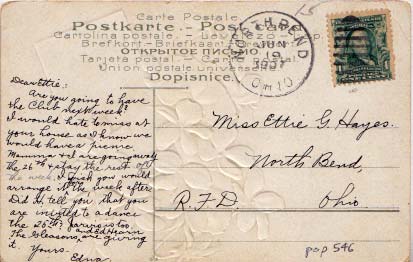 Carte Postale
Postkarte - Post Card
Cartolina postale - Levelező-Lap
Brefkort - Briefkaart
ОТКРЫТОЕ ПИСЬМО
Tarjeta postal
Union postale universelle
Dopisnice.
NORTH BEND
JUN
19
1907
OHIO
15
Dear Ettie:
Are you going to have
the Club next week?
I would hate to miss at
your house as I know we
would have a picnic
Mamma & I are going away
the 26th & stay the rest of
the week. I wish you would
arrange it the week after
Did H. tell you that you
are invited to a dance
the 26th?
The Gleasons, are giving
it. Yours-
Edna
Miss Ettie G. Hayes.
North Bend,
R.F.D Ohio.
pop 546